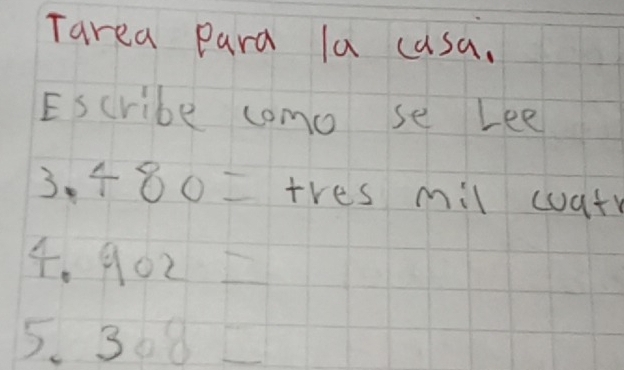 Tarea para la casa.
Escribe como se Lee
3.480 = tres mil cuatr
4.902 =
5.308 =